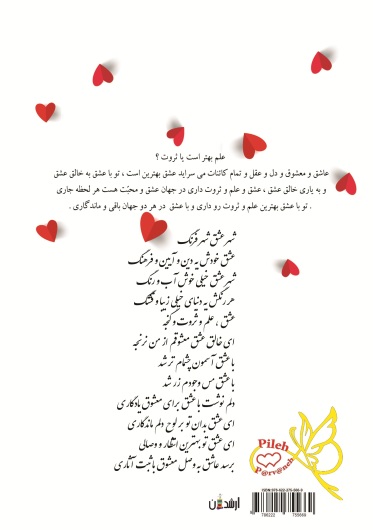 علم بهتر است یا ثروت ؟
عاشق و معشوق و دل و عقل و تمام کائنات می سراید عشق بهترین است ، تو با عشق به خالق عشق
و به یاری خالق عشق ، عشق و علم و ثروت داری در جهان عشق و محبّت هست هر لحظه جاری
. تو با عشق بهترین علم و ثروت رو داری و با عشق در هر دو جهان باقی و ماندگاری .
شهر عشق شهر فرنگ
عشق خودش یه دین و آیین و فرهنگ
شهر عشق خیلی خوش آب و رنگ
هر رنگش یه دنیای خیلی زیبا و قشنگ
عشق ، علم و ثروت و گنجه
ای خالق عشق معشوقم از من نرنجه
با عشق آسمون چشمام تر شد
با عشق مس وجودم زر شد
دلم نوشت با عشق برای معشوق یادگاری
ای عشق بدان تو بر لوح دلم ماندگاری
ای عشق تو بهترین انتظار و وصالی
برسد عاشق به وصل معشوق با ثبت آثاری
Pileh
P@rv@neh
ارشدان